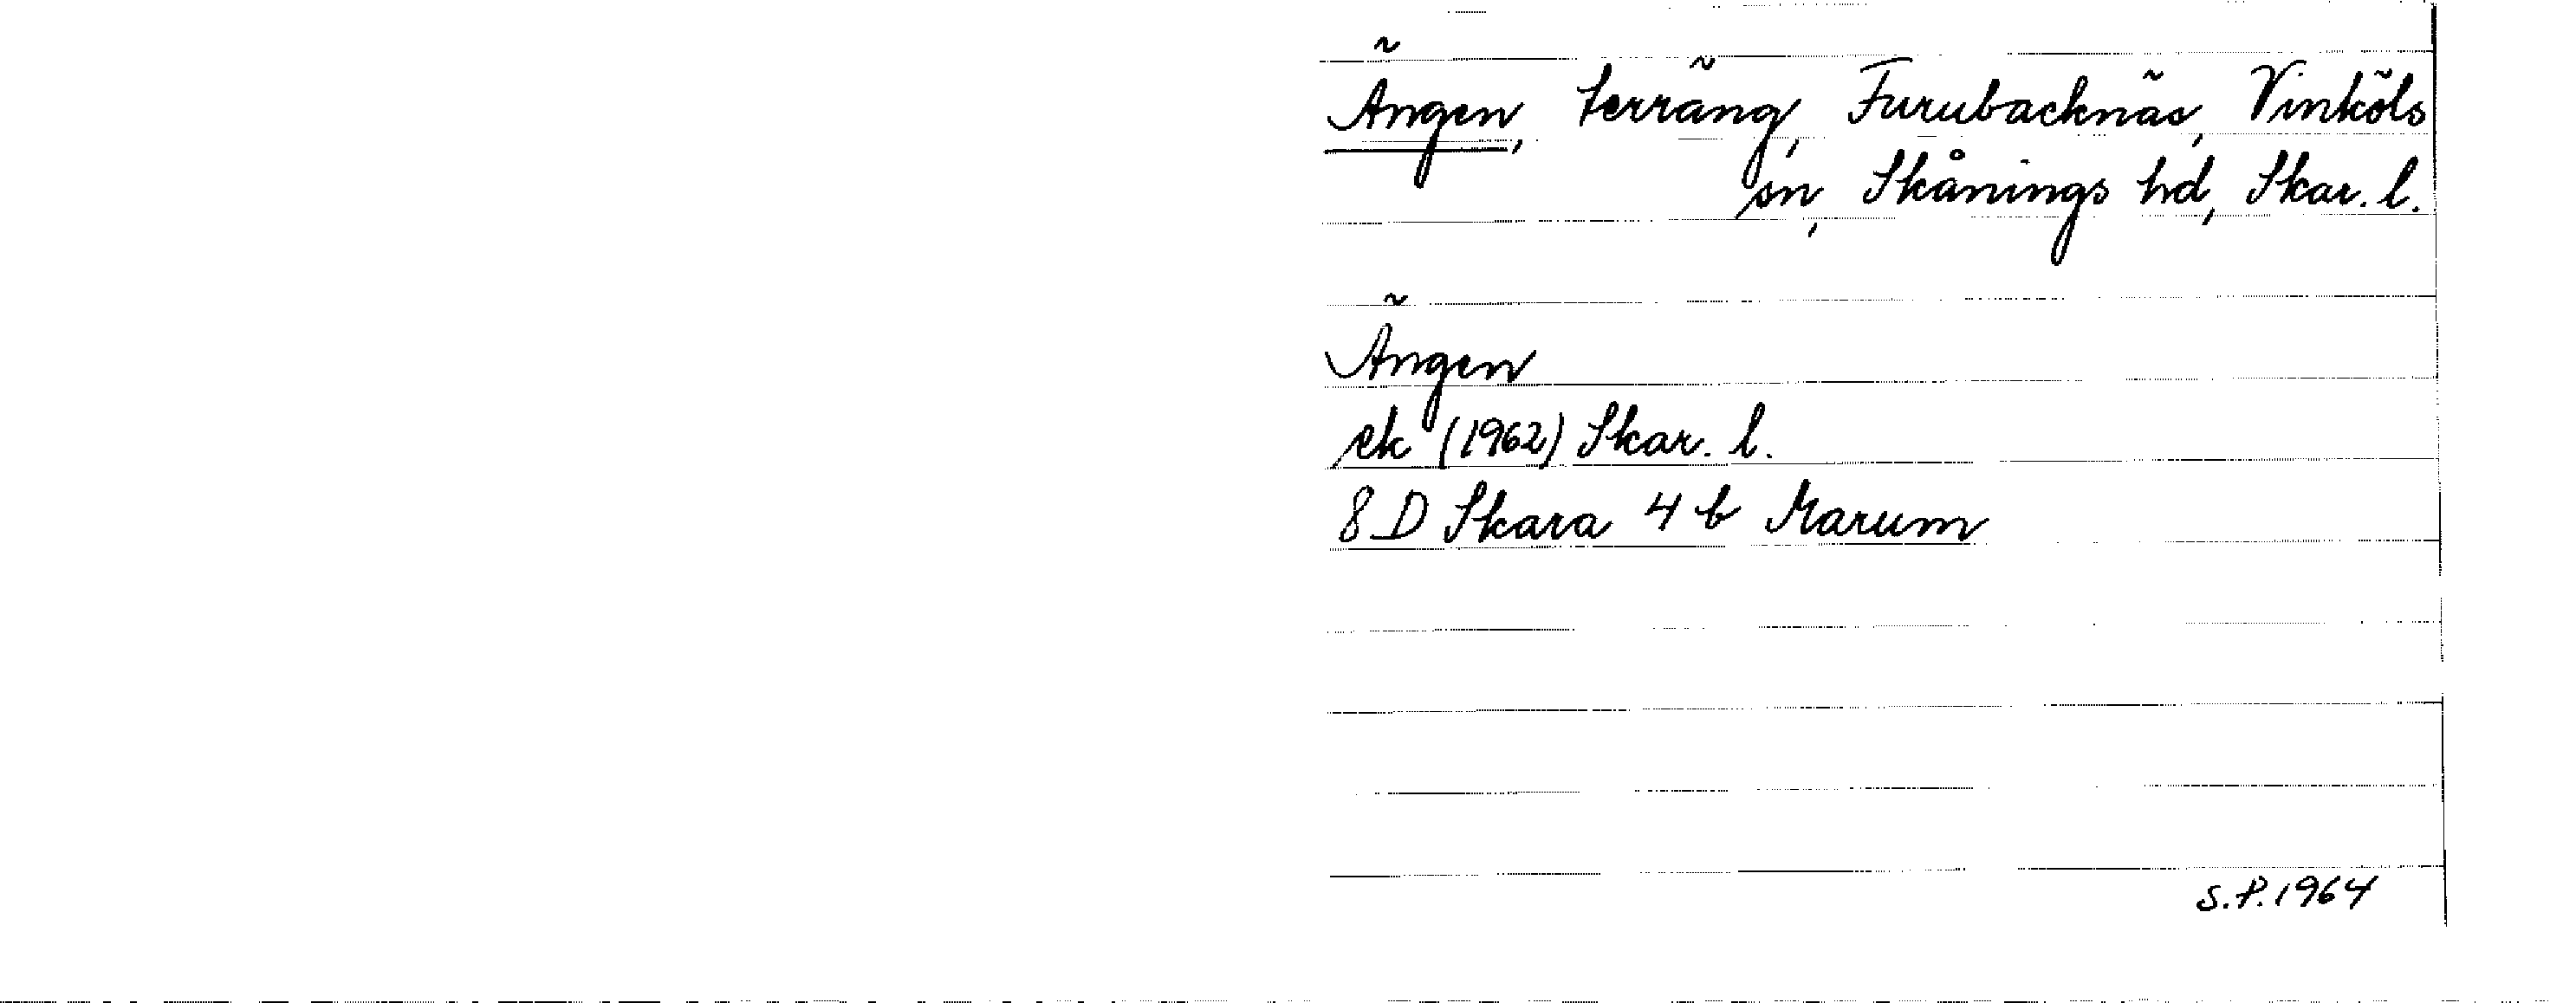 Ängen, terräng, Furubacknäs, Vinköls
sn, Skånings hd, Skar. l.
Ängen
ek (1962) Skar. l.
8 D Skara 4 b Marum
S.P. 1964